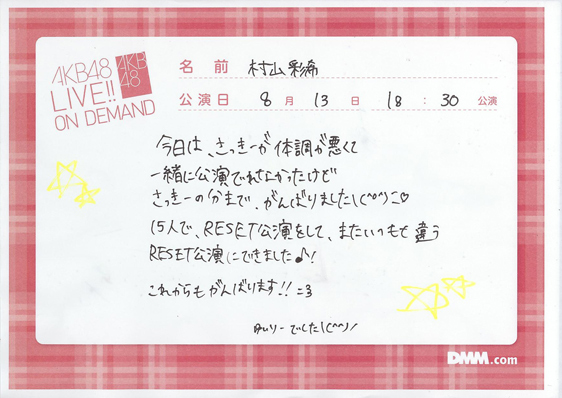 AKB48
LIVE!!
ON DEMAND
AKB
48
名前 村山彩希
公演日 8月13日 18:30公演
今日は、さっきーが体調が悪くて
一緒に公演でれなかったけど
さっきーの分まで、がんばりました\(^o^)こ♡
15人で、RESET公演をして、またいつもと違う
RESET公演にできました♪!
これからもがんばります!!=3
ゆいりーでした\(^^)/
DMM.com